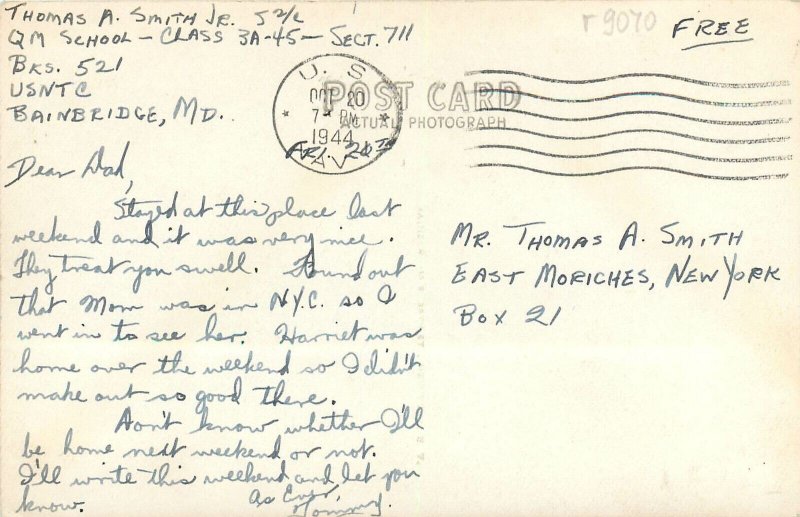 Thomas A. Smith Jr. S 2/c
QM School - Class 3A-45 - Sect. 711
Bks. 521
USNTC
Bainbridge, Md.
r 9070
Free
U. S.
OCT 20
7 - PM
1944
NAVY
Fri. 20
POST CARD
ACTUAL PHOTOGRAPH
Dear Dad,
Stayed at this place last
weekend and it was very nice.
They treat you swell. Found out
that Mom was in N.Y.C. so I
went in to see her. Harriet was
home over the weekend so I didn't
make out so good there.
Don't know whether I'll
be home next weekend or not.
I'll write this weekend and let you
know.
As Ever,
Tommy.
Mr. Thomas A. Smith
East Moriches, New York
Box 21